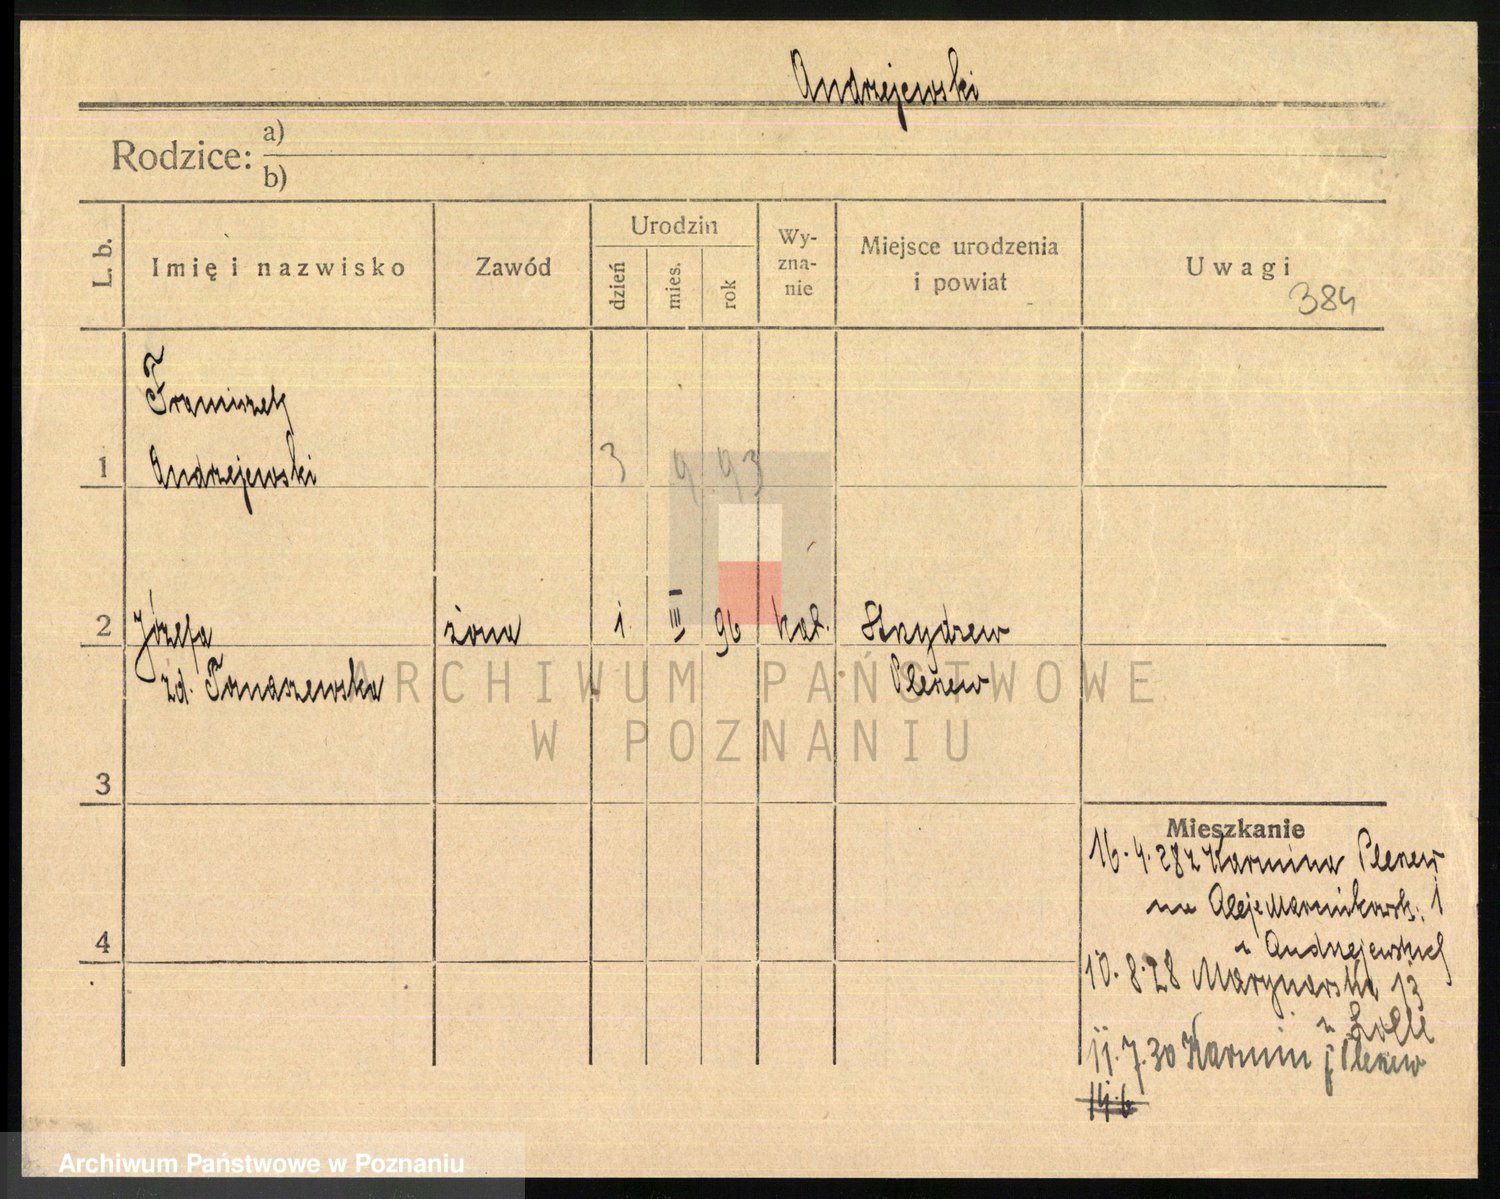 Andrzejewski
Rodzice: a)
b)
L. b.
Imię i nazwisko
Zawód
Urodzin
dzień
mies.
rok
Wy-
zna-
nie
Miejsce urodzenia
i powiat
Uwagi
384
Franciszek
1 Andrzejewski 3 9 93
2 Józefa żona 1. III 96 kat.
zd. Tomaszewska Pleszew
3
4
Mieszkanie
16.4.28 z Karmina Pleszew
na 1
u Andrzejewskich
10.8.28 Marynarska 13
u
11.7.30 Karmin p Pleszew
14.6
ARCHIWUM PAŃSTWOWE
W POZNANIU
Archiwum Państwowe w Poznaniu